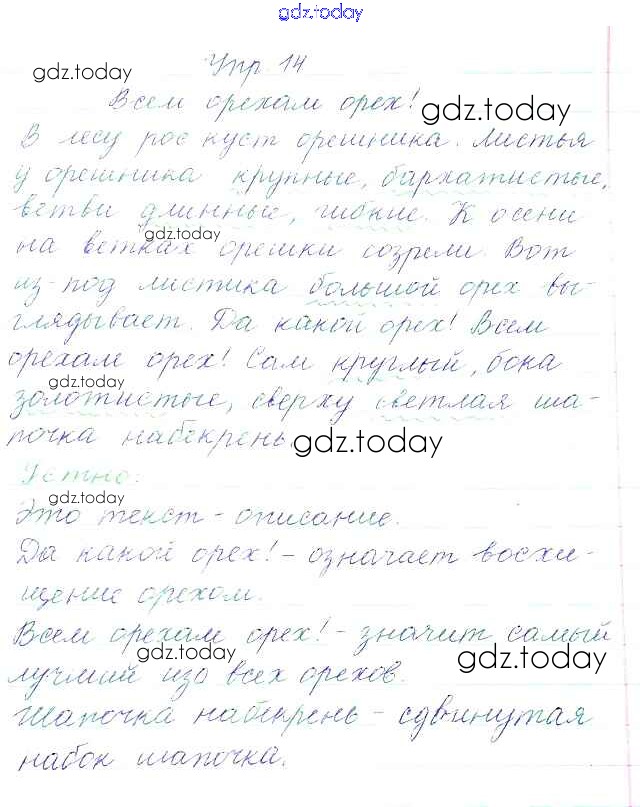 gdz.today
Упр. 14
gdz.today
Всем орехам орех!
gdz.today
В лесу рос куст орешника. Листья
у орешника крупные, бархатистые,
ветви длинные, гибкие. К осени
gdz.today
на ветках орешки созрели. Вот
из-под листика большой орех вы-
глядывает. Да какой орех! Всем
орехам орех! Сам круглый, бока
gdz.today
золотистые, сверху светлая ша-
почка набекрень.
gdz.today
Устно:
gdz.today
Это текст - описание.
Да какой орех! - означает восхи-
щение орехом.
Всем орехам орех! - значит самый
gdz.today
gdz.today
лучший изо всех орехов.
Шапочка набекрень - сдвинутая
набок шапочка.